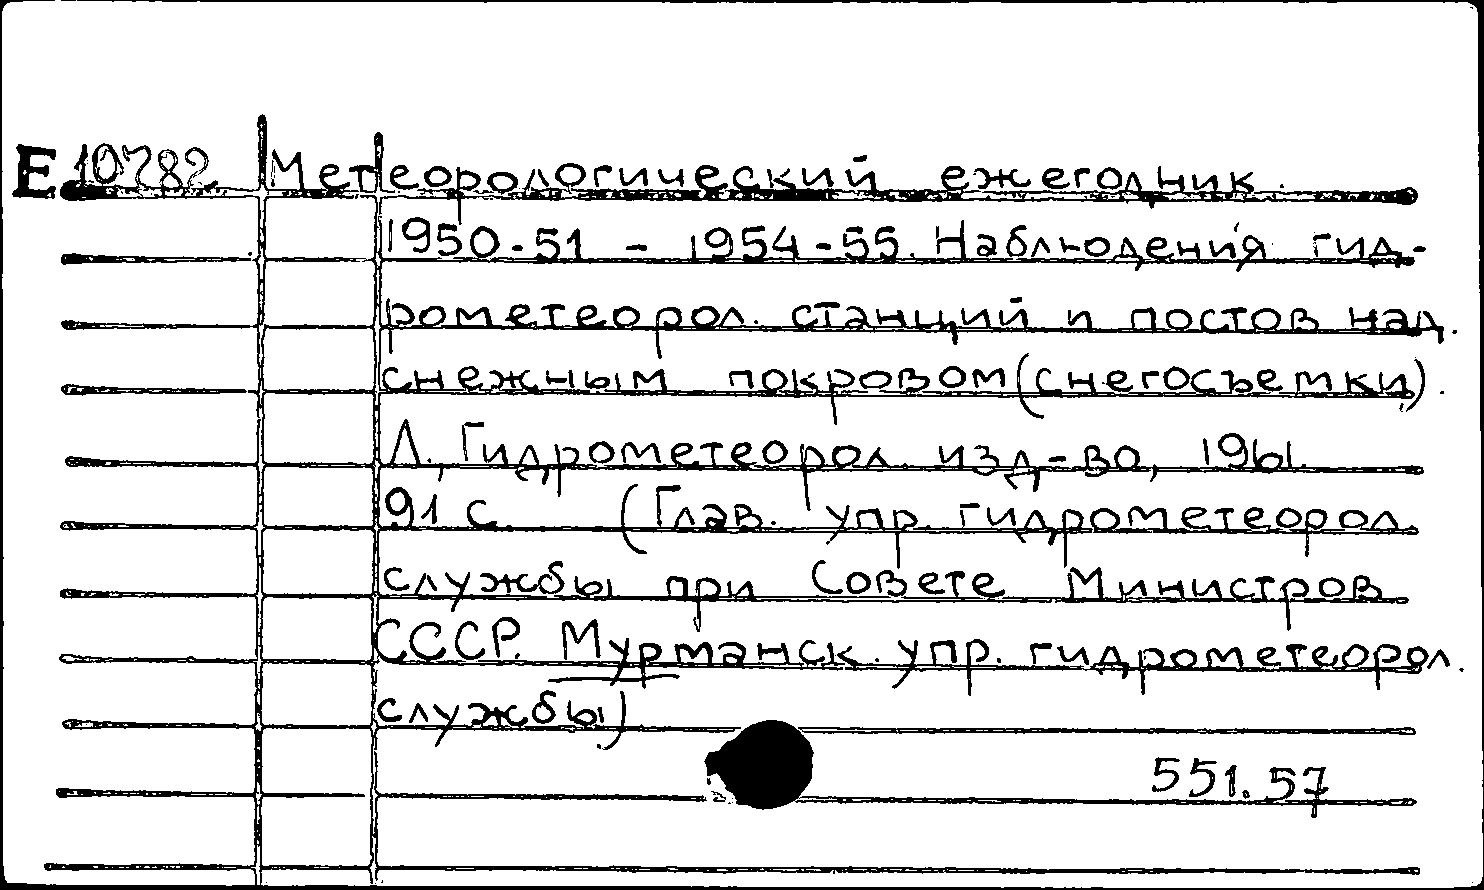 E 10782 Метеорологический ежегодник.
1950-51 - 1954-55. Наблюдения гид-
рометеорол. станций и постов над.
снежным покровом (снегосъемки).
Л., Гидрометеорол. изд-во, 1961.
91 с. (Глав. упр. гидрометеорол.
службы при Совете Министров
СССР. Мурманск. упр. гидрометеорол.
службы)
551.57